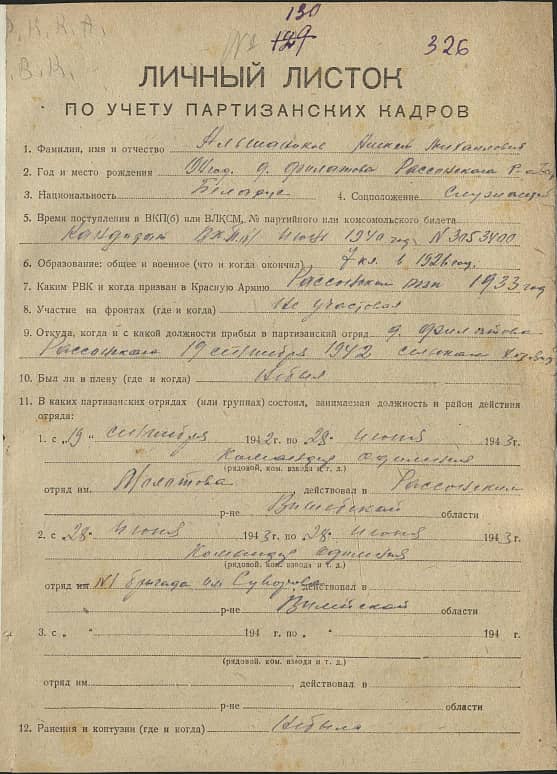 Р. К. К. А.
В. К.
130
№ 129
326
ЛИЧНЫЙ ЛИСТОК
ПО УЧЕТУ ПАРТИЗАНСКИХ КАДРОВ
1. Фамилия, имя и отчество Михайлович
2. Год и место рождения д. Филатова Рассонского Р-на
3. Национальность Беларус 4. Соцположение Служащий
5. Время поступления в ВКП(б) или ВЛКСМ, № партийного или комсомольского билета
Кандидат ВКП(б) 1940 год N 3053400
6. Образование: общее и военное (что и когда окончил) 7 кл. в 1926 год.
7. Каким РВК и когда призван в Красную Армию Рассонским 1933 год
8. Участие на фронтах (где и когда) Не участвовал
9. Откуда, когда и с какой должности прибыл в партизанский отряд д. Филатова
Рассонского 19 сентября 1942
10. Был ли в плену (где и когда) Не был
11. В каких партизанских отрядах (или группах) состоял, занимаемая должность и район действия
отряда:
1. с „19" сентября 1942 г. по „28" июня 1943 г.
Командир отделения
(рядовой, ком. взвода и т. д.)
отряд им. действовал в Рассонским
р-не Витебской области
2. с „28" июня 1943 г. по „28" июня 1943 г.
Командир отделения
(рядовой, ком. взвода и т. д.)
отряд им. №1 бригада им Суворова действовал в
р-не Вилейской области
3. с „ " 194 г. по „ " 194 г.
(рядовой, ком. взвода и т. д.)
отряд им. действовал в
р-не области
12. Ранения и контузии (где и когда) Не было